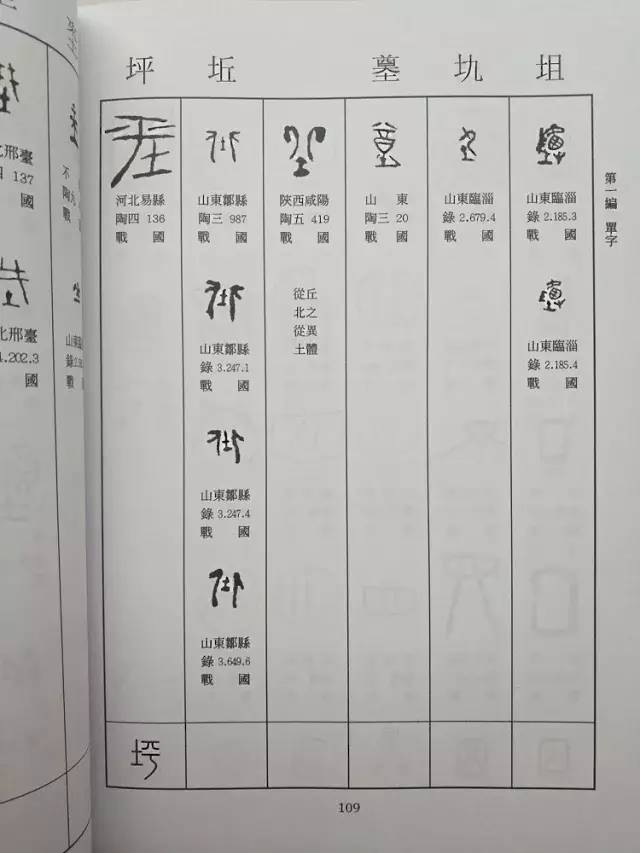 第一編 單字
坥
山東臨淄
錄 2.185.3
戰國
山東臨淄
錄 2.185.4
戰國
山東臨淄
錄 2.679.4
戰國
墓
山東
陶三 20
戰國
陝西咸陽
陶五 419
戰國
從丘
北之
從異
土體
坵
山東鄒縣
陶三 987
戰國
山東鄒縣
錄 3.247.1
戰國
山東鄒縣
錄 3.247.4
戰國
山東鄒縣
錄 3.649.6
戰國
坪
河北易縣
陶四 136
戰國
坪
109
不
陶九
戰
山東臨
錄 2.
戰
北邢臺
137
國
北邢臺
.202.3
國